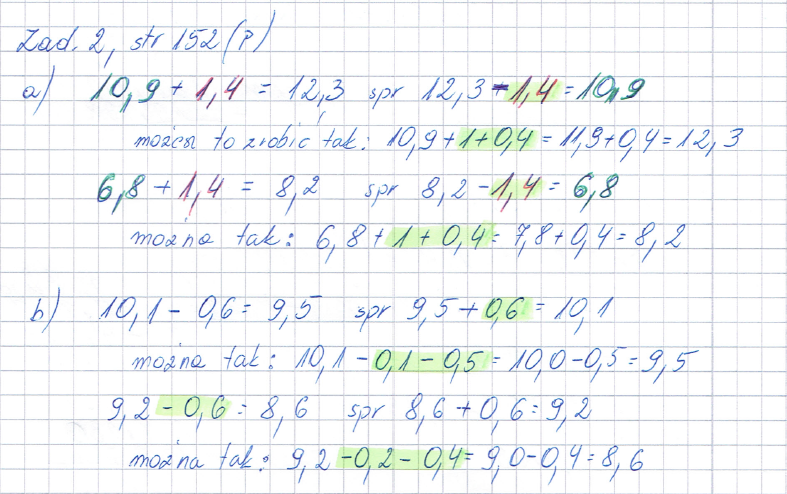 Zad. 2, str 152 (P)
a) 10,9 + 1,4 = 12,3 spr 12,3 - 1,4 = 10,9
możesz to zrobić tak: 10,9 + 1 + 0,4 = 11,9 + 0,4 = 12,3
6,8 + 1,4 = 8,2 spr 8,2 - 1,4 = 6,8
można tak: 6,8 + 1 + 0,4 = 7,8 + 0,4 = 8,2
b) 10,1 - 0,6 = 9,5 spr 9,5 + 0,6 = 10,1
można tak: 10,1 - 0,1 - 0,5 = 10,0 - 0,5 = 9,5
9,2 - 0,6 = 8,6 spr 8,6 + 0,6 = 9,2
można tak: 9,2 - 0,2 - 0,4 = 9,0 - 0,4 = 8,6